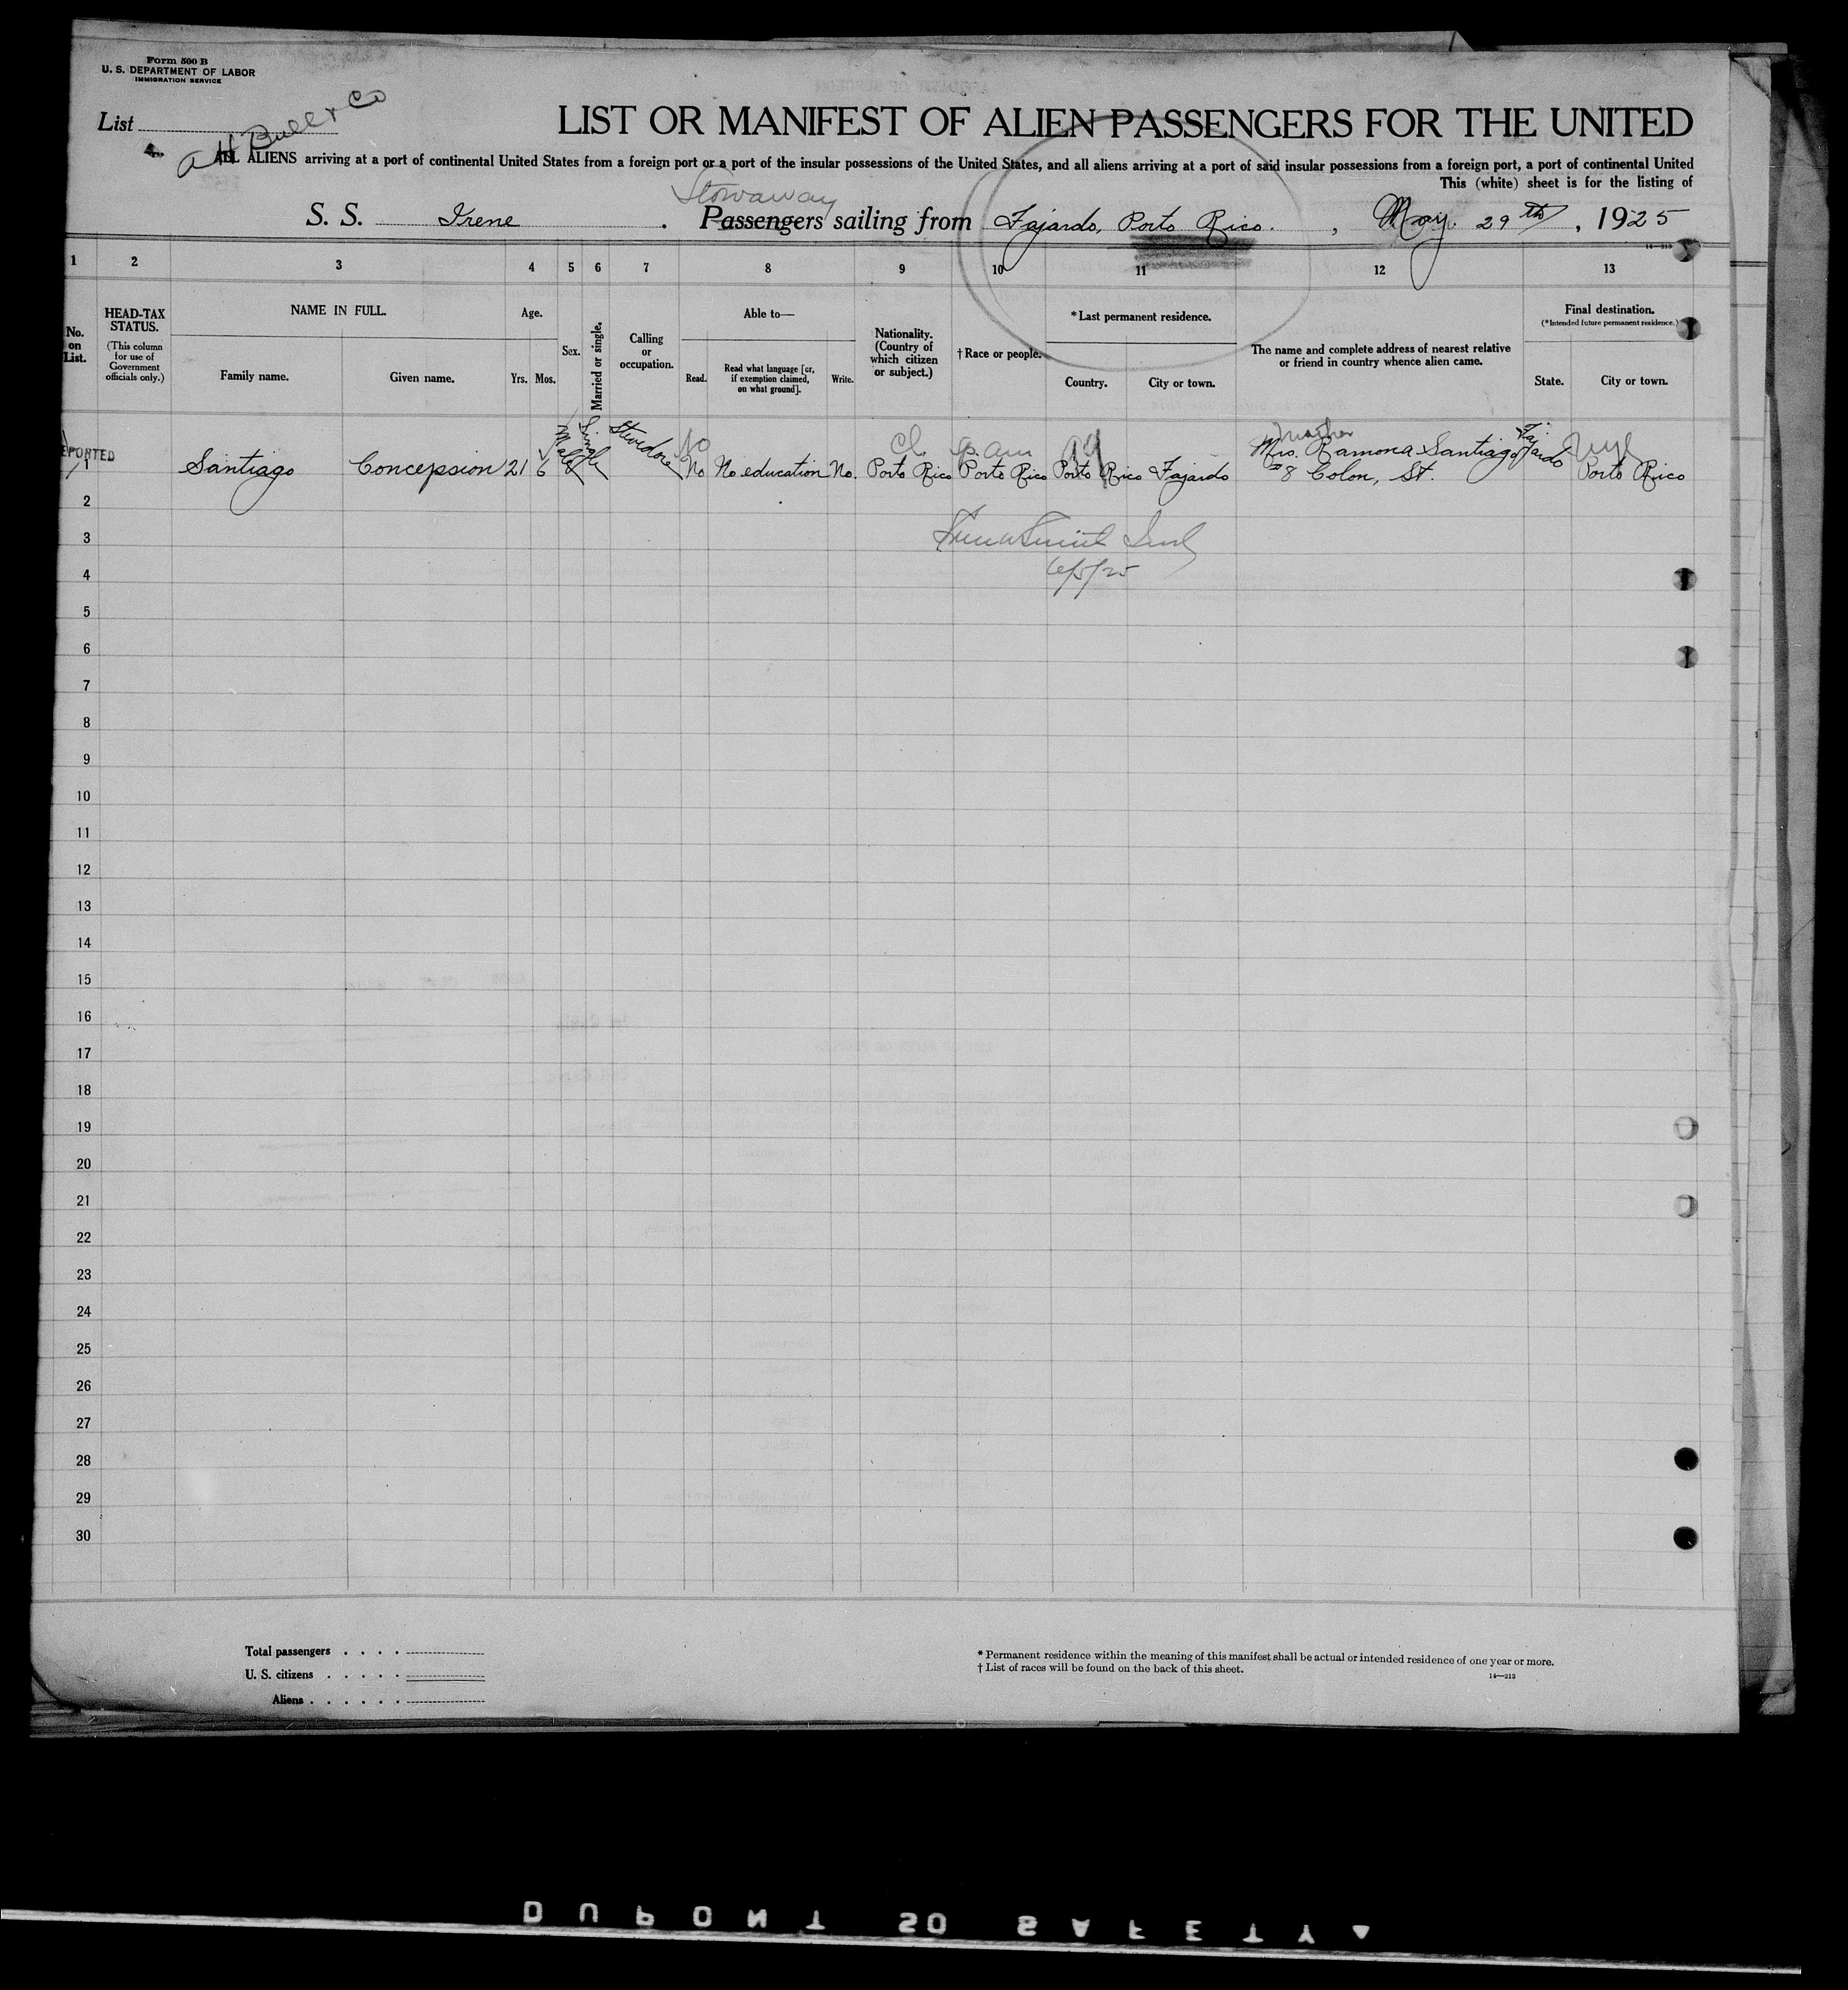 Form 500 B
U. S. DEPARTMENT OF LABOR
IMMIGRATION SERVICE
List
A H Bull & Co
LIST OR MANIFEST OF ALIEN PASSENGERS FOR THE UNITED
ALL ALIENS arriving at a port of continental United States from a foreign port or a port of the insular possessions of the United States, and all aliens arriving at a port of said insular possessions from a foreign port, a port of continental United
This (white) sheet is for the listing of
Stowaway
S. S. Irene. Passengers sailing from Fajardo, Porto Rico. , May. 29th, 1925
14—213
1 2 3 4 5 6 7 8 9 10 11 12 13
No. on List.
HEAD-TAX STATUS.
(This column for use of Government officials only.)
NAME IN FULL.
Family name. Given name.
Age.
Yrs. Mos.
Sex.
Married or single.
Calling or occupation.
Able to—
Read. Read what language [or, if exemption claimed, on what ground]. Write.
Nationality. (Country of which citizen or subject.)
†Race or people.
*Last permanent residence.
Country. City or town.
The name and complete address of nearest relative or friend in country whence alien came.
Final destination.
(*Intended future permanent residence.)
State. City or town.
PORTED
No mother
1 Santiago Concepsion 21 6 Male Single Stevedore No No education No. Porto Rico Porto Rico Porto Rico Fajardo Mrs. Ramona Santiago Fajardo Porto Rico
#8 Colon, St.
2
3
6/5/25
4
5
6
7
8
9
10
11
12
13
14
15
16
17
18
19
20
21
22
23
24
25
26
27
28
29
30
Total passengers . . . .
U. S. citizens . . . . .
Aliens . . . . . .
* Permanent residence within the meaning of this manifest shall be actual or intended residence of one year or more.
† List of races will be found on the back of this sheet.
14—213
DUPONT 50 SAFETY